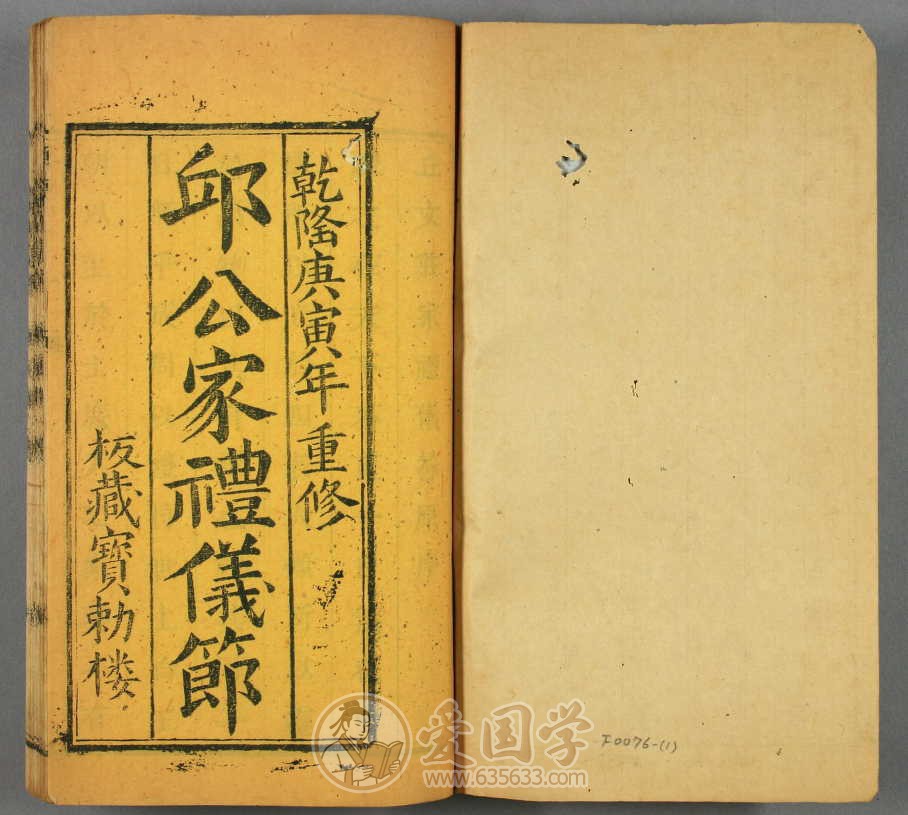 乾隆庚寅年重修
邱公家禮儀節
板藏寳勅楼
F0076-(1)
爱国学
www.635633.com